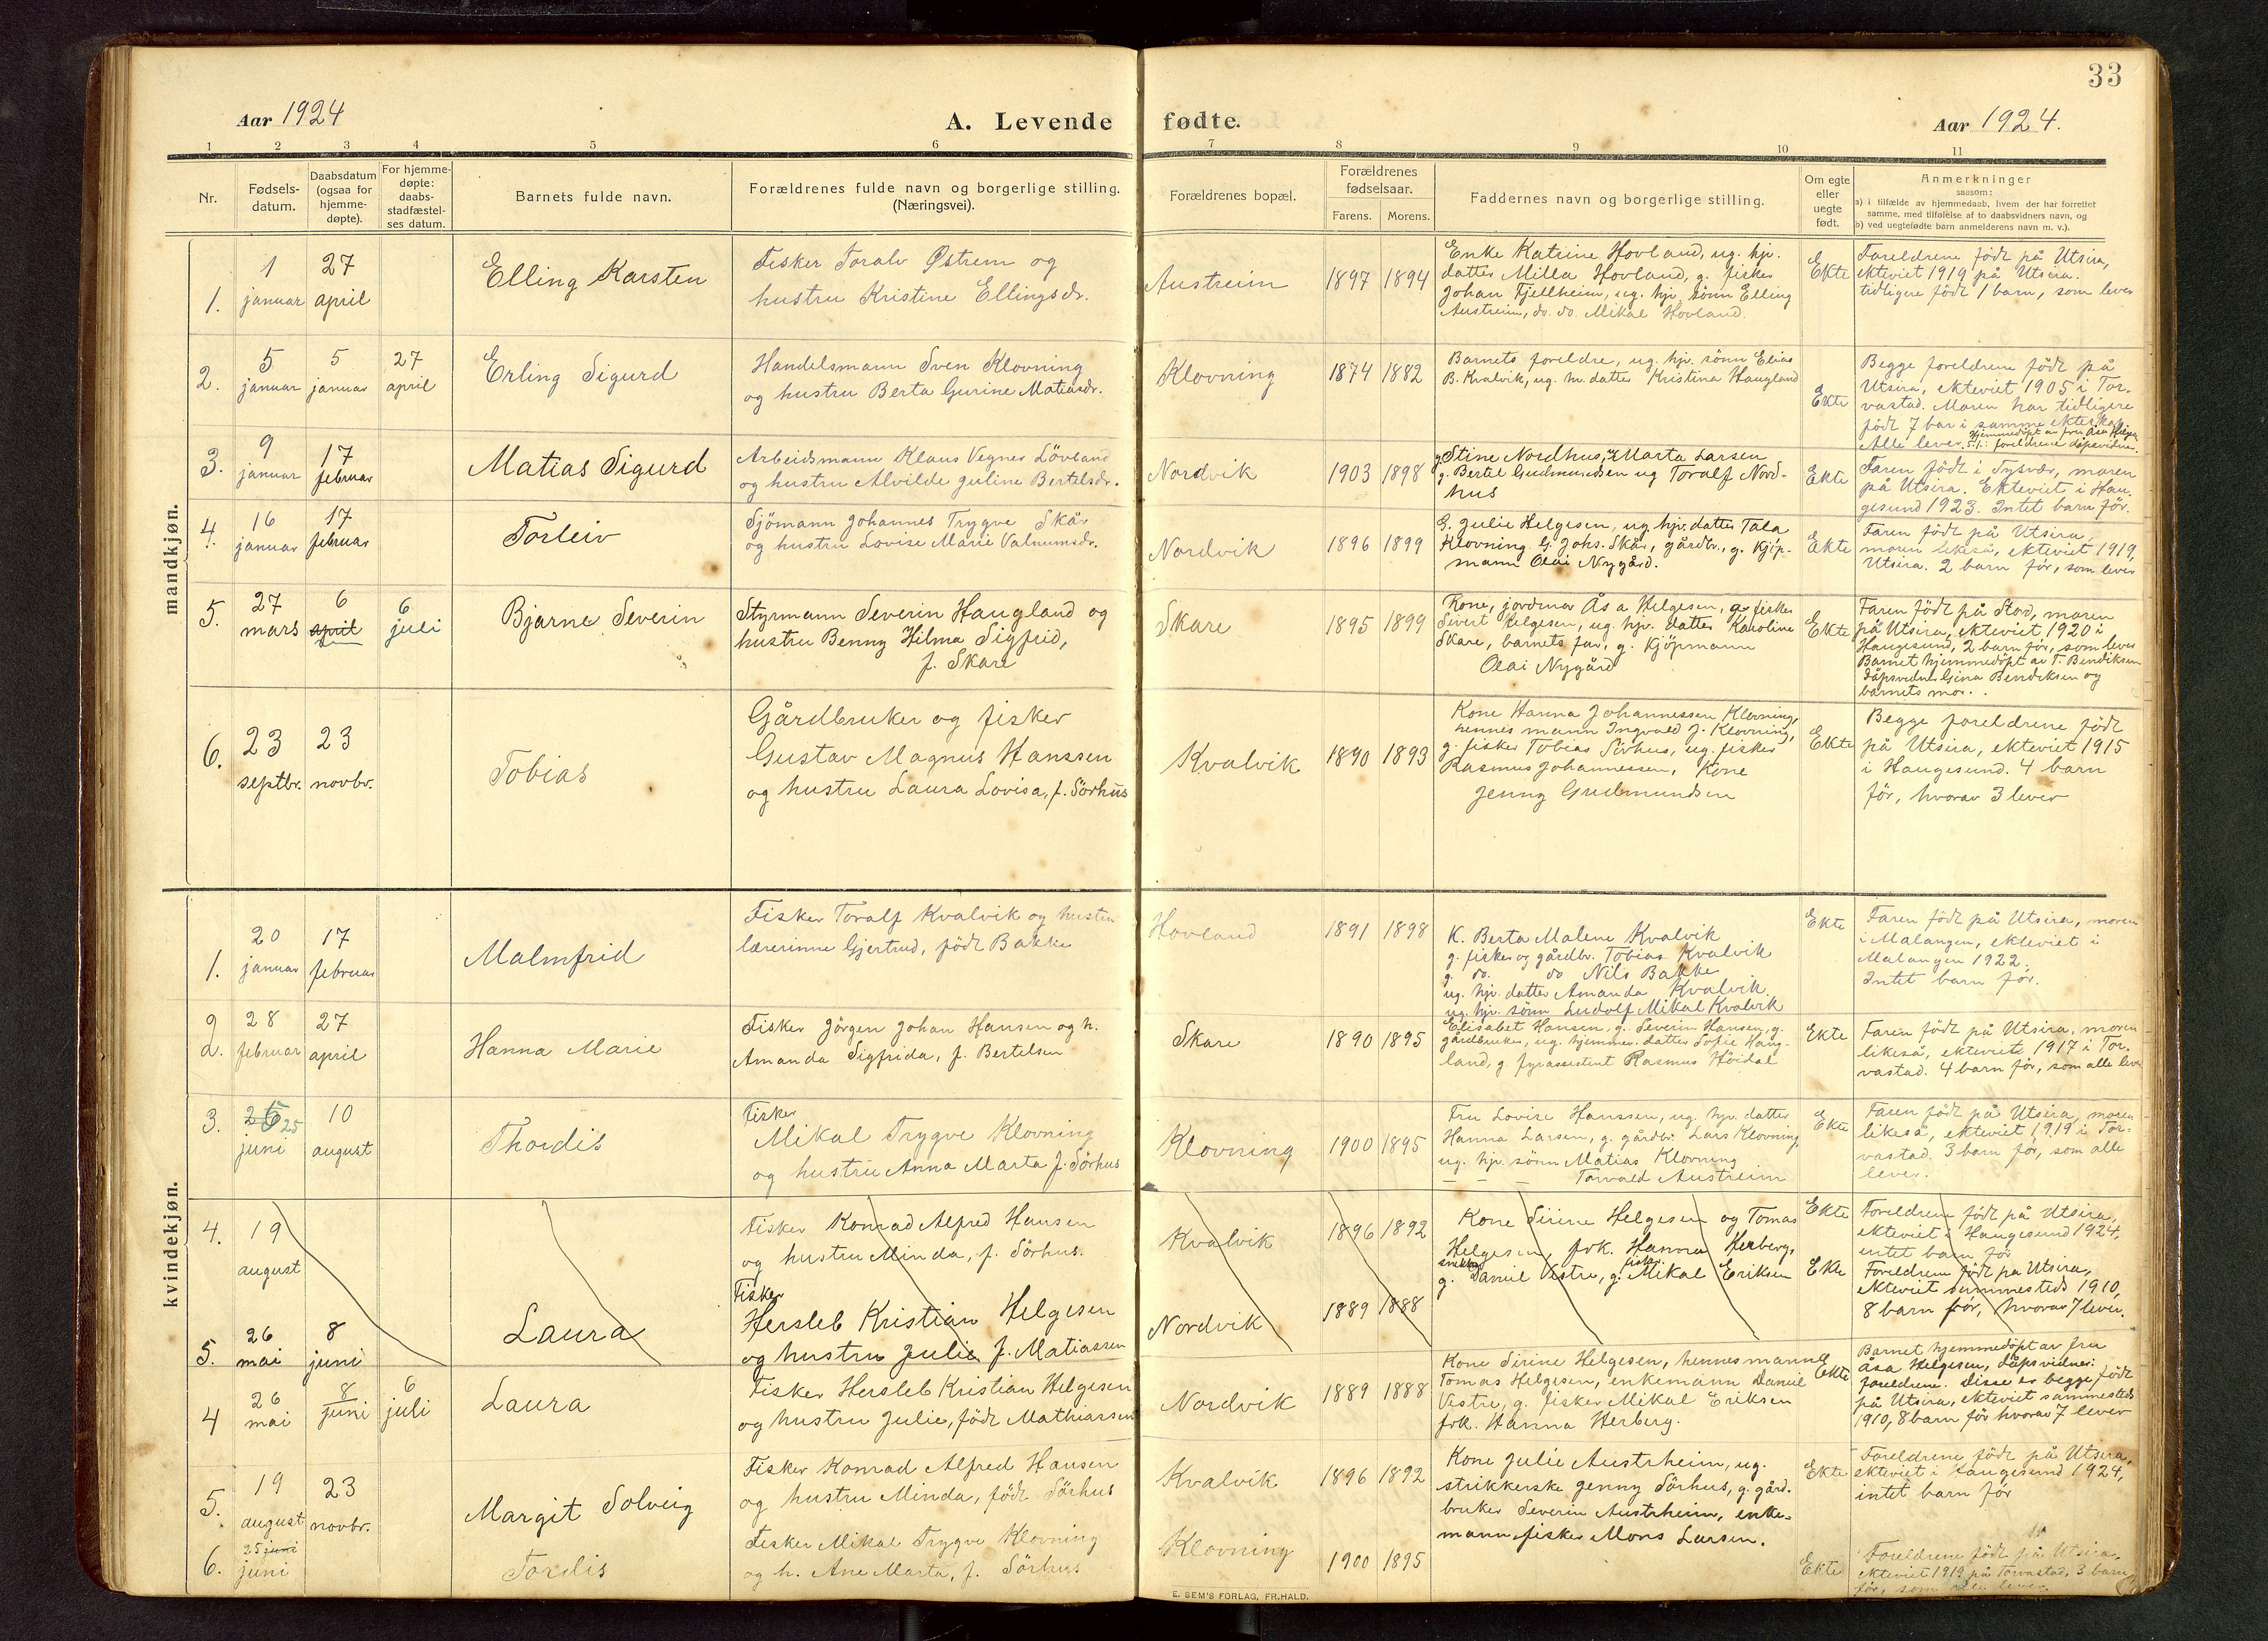 33
Aar 1924
A. Levende fødte.
Aar 1924.
1 2 3 4 5 6 7 8 9 10 11
Nr.
Fødsels-
datum.
Daabsdatum
(ogsaa for
hjemme-
døpte).
For hjemme-
døpte:
daabs-
stadfæstel-
ses datum.
Barnets fulde navn.
Forældrenes fulde navn og borgerlige stilling.
(Næringsvei).
Forældrenes bopæl.
Forældrenes
fødselsaar.
Farens. Morens.
Faddernes navn og borgerlige stilling.
Om egte
eller
uegte
født.
Anmerkninger
saasom:
a) i tilfælde av hjemmedaab, hvem der har forrettet
samme, med tilføielse af to daabsvidners navn, og
b) ved uegtefødte barn anmelderens navn m. v.).
mandkjøn.
1.
1
januar
27
april
Elling Karsten
Fisker Toralv Østrem og
hustru Kristine Ellingsdr.
Austreim
1897 1894
Enke Katrine Hovland, ug. hjv.
datter Milla Hovland, g. fisker
Johan Fjellheim, ug. hjv. sönn Elling
Austreim, do. do. Mikal Hovland.
Ekte
Foreldrene födt på Utsira,
ekteviet 1919 på Utsira.
tidligere födt 1 barn, som lever
2.
5
januar
5
januar
27
april
Erling Sigurd
Handelsmann Sven Klovning
og hustru Berta Gurine Matiasdr.
Klovning
1874 1882
Barnets foreldre, ug. hjv. sönn Elias
B. Kvalvik, ug. hv. datter Kristina Haugland
Ekte
Begge foreldrene födt på
Utsira, ekteviet 1905 i Tor-
vastad. Moren har tidligere
födt 7 bar i samme ekteskap
Alle lever. Hjemmedöpt av fru Åsa Helgesen
5.1.: foreldrene dåpsvidner.
3.
9
januar
17
februar
Matias Sigurd
Arbeidsmann Klaus Vegner Lövland
og hustru Alvilde Juline Bertelsdr.
Nordvik
1903 1898
g. Stine Nordhus, g. Marta Larsen
g. Bertel Gudmundsen ug Toralf Nord-
hus
Ekte
Faren födt i Tysvær, moren
på Utsira. Ekteviet i Hau-
gesund 1923. Intet barn för.
4.
16
januar
17
februar
Torleiv
Sjömann Johannes Trygve Skår
og hustru Lovise Marie Valnumsdr.
Nordvik
1896 1899
G. Julie Helgesen, ug hjv. datter Tala
Klovning G. Johs. Skår, gårdbr., g. Kjöp-
mann Olai Nygård.
Ekte
Faren födt på Utsira,
moren likeså, ekteviet 1919,
Utsira. 2 barn för, som lever
5.
27
mars
6
april
6
juli
Bjarne Severin
Styrmann Severin Haugland og
hustru Benny Hilma Sigfrid,
f. Skare
Skare
1895 1899
Kone, jordmor Åsa Helgesen, g. fisker
Sivert Helgesen, ug. hjv. datter Karoline
Skare, barnets far, g. Kjöpmann
Olai Nygård
Ekte
Faren födt på Stord, moren
på Utsira, ekteviet 1920 i
Haugesund, 2 barn för, som lever
Barnet hjemmedöpt av T. Bendiksen
dåpsvidner Gina Bendiksen og
barnets mor.
6.
23
septbr.
23
novbr.
Tobias
Gårdbruker og fisker
Gustav Magnus Hanssen
og hustru Laura Lovisa, f. Sörhus
Kvalvik
1890 1893
Kone Hanna Johannessen Klovning,
hennes mann Ingvald J. Klovning,
g. fisker Tobias Sörhus, ug. fisker
Rasmus Johannessen, Kone
Jenny Gudmundsen
Ekte
Begge foreldrene födt
på Utsira, ekteviet 1915
i Haugesund. 4 barn
för, hvorav 3 lever
kvindekjøn.
1.
20
januar
17
februar
Malmfrid
Fisker Toralf Kvalvik og hustru
lærerinne Gjertrud, födt Bakke
Hovland
1891 1898
K. Berta Malene Kvalvik
g. fisker og gårdbr. Tobias Kvalvik
g. do. do Nils Bakke
ug. hjv. datter Amanda Kvalvik.
ug. hjv. sönn Ludolf Mikal Kvalvik
Ekte
Faren födt på Utsira, moren
i Malangen, ekteviet i
Malangen 1922.
Intet barn för.
2.
28
februar
27
april
Hanna Marie
Fisker Jörgen Johan Hansen og h.
Amanda Sigfrida, f. Bertelsen
Skare
1890 1895
Elisabet Hansen, g. Severin Hansen, g.
gårdbruker, ug. hjemmev. datter Sofie Haug-
land, g. fyrassistent Rasmus Höidal
Ekte
Faren födt på Utsira, moren
likeså, ekteviet 1917 i Tor-
vastad. 4 barn för, som alle lever
3.
26 25
juni
10
august
Thordis
Fisker
Mikal Trygve Klovning
og hustru Anna Marta f. Sörhus
Klovning
1900 1895
Fru Lovise Hanssen, ug. hjv. datter
Hanna Larsen, g. gårdbr. Lars Klovning,
ug. hjv. sönn Matias Klovning
— — — Torvald Austreim
Ekte
Faren födt på Utsira, moren
likeså, ekteviet 1919 i Tor-
vastad. 3 barn för, som alle
lever.
4.
19
august
Fisker Konrad Alfred Hansen
og hustru Minda, f. Sörhus.
Kvalvik
1896 1892
Kone Sirine Helgesen og Tomas
Helgesen, frk. Hanna Herberg,
g. Daniel Vestre, g. fisker Mikal Eriksen
Ekte
Foreldrene födt på Utsira,
ekteviet i Haugesund 1924,
intet barn för
5.
26
mai
8
juni
Laura
Fisker
Hersleb Kristian Helgesen
og hustru Julie f. Matiassen
Nordvik
1889 1888
Ekte
Foreldrene födt på Utsira,
ekteviet sammesteds 1910,
8 barn för, hvorav 7 lever.
4
26
mai
8
juni
6
juli
Laura
Fisker Hersleb Kristian Helgesen
og hustru Julie, födt Mathiassen
Nordvik
1889 1888
Kone Sirine Helgesen, hennes mann
Tomas Helgesen, enkemann Daniel
Vestre, g. fisker Mikal Eriksen
frk. Hanna Herberg.
Ekte
Barnet hjemmedöpt av fru
Åsa Helgesen, dåpsvidner:
foreldrene. Disse er begge födt
på Utsira, ekteviet sammesteds
1910, 8 barn för hvorav 7 lever
5.
19
august
23
novbr.
Margit Solveig
Fisker Konrad Alfred Hansen
og hustru Minda, födt Sörhus
Kvalvik
1896 1892
Kone Julie Austrheim, ug.
strikkerske Jenny Sörhus, g. gård-
bruker Severin Austrheim, enke-
mann fisker Mons Larsen.
Ekte
Foreldrene födt på Utsira,
ekteviet i Haugesund 1924,
intet barn för
6.
25 juni
juni
Tordis
Fisker Mikal Trygve Klovning
og h. Ane Marta, f. Sörhus
Klovning
1900 1895
Ekte
Foreldrene födt på Utsira,
ekteviet 1919 på Torvastad, 3 barn
för, som alle lever
E. SEM'S FORLAG, FR.HALD.